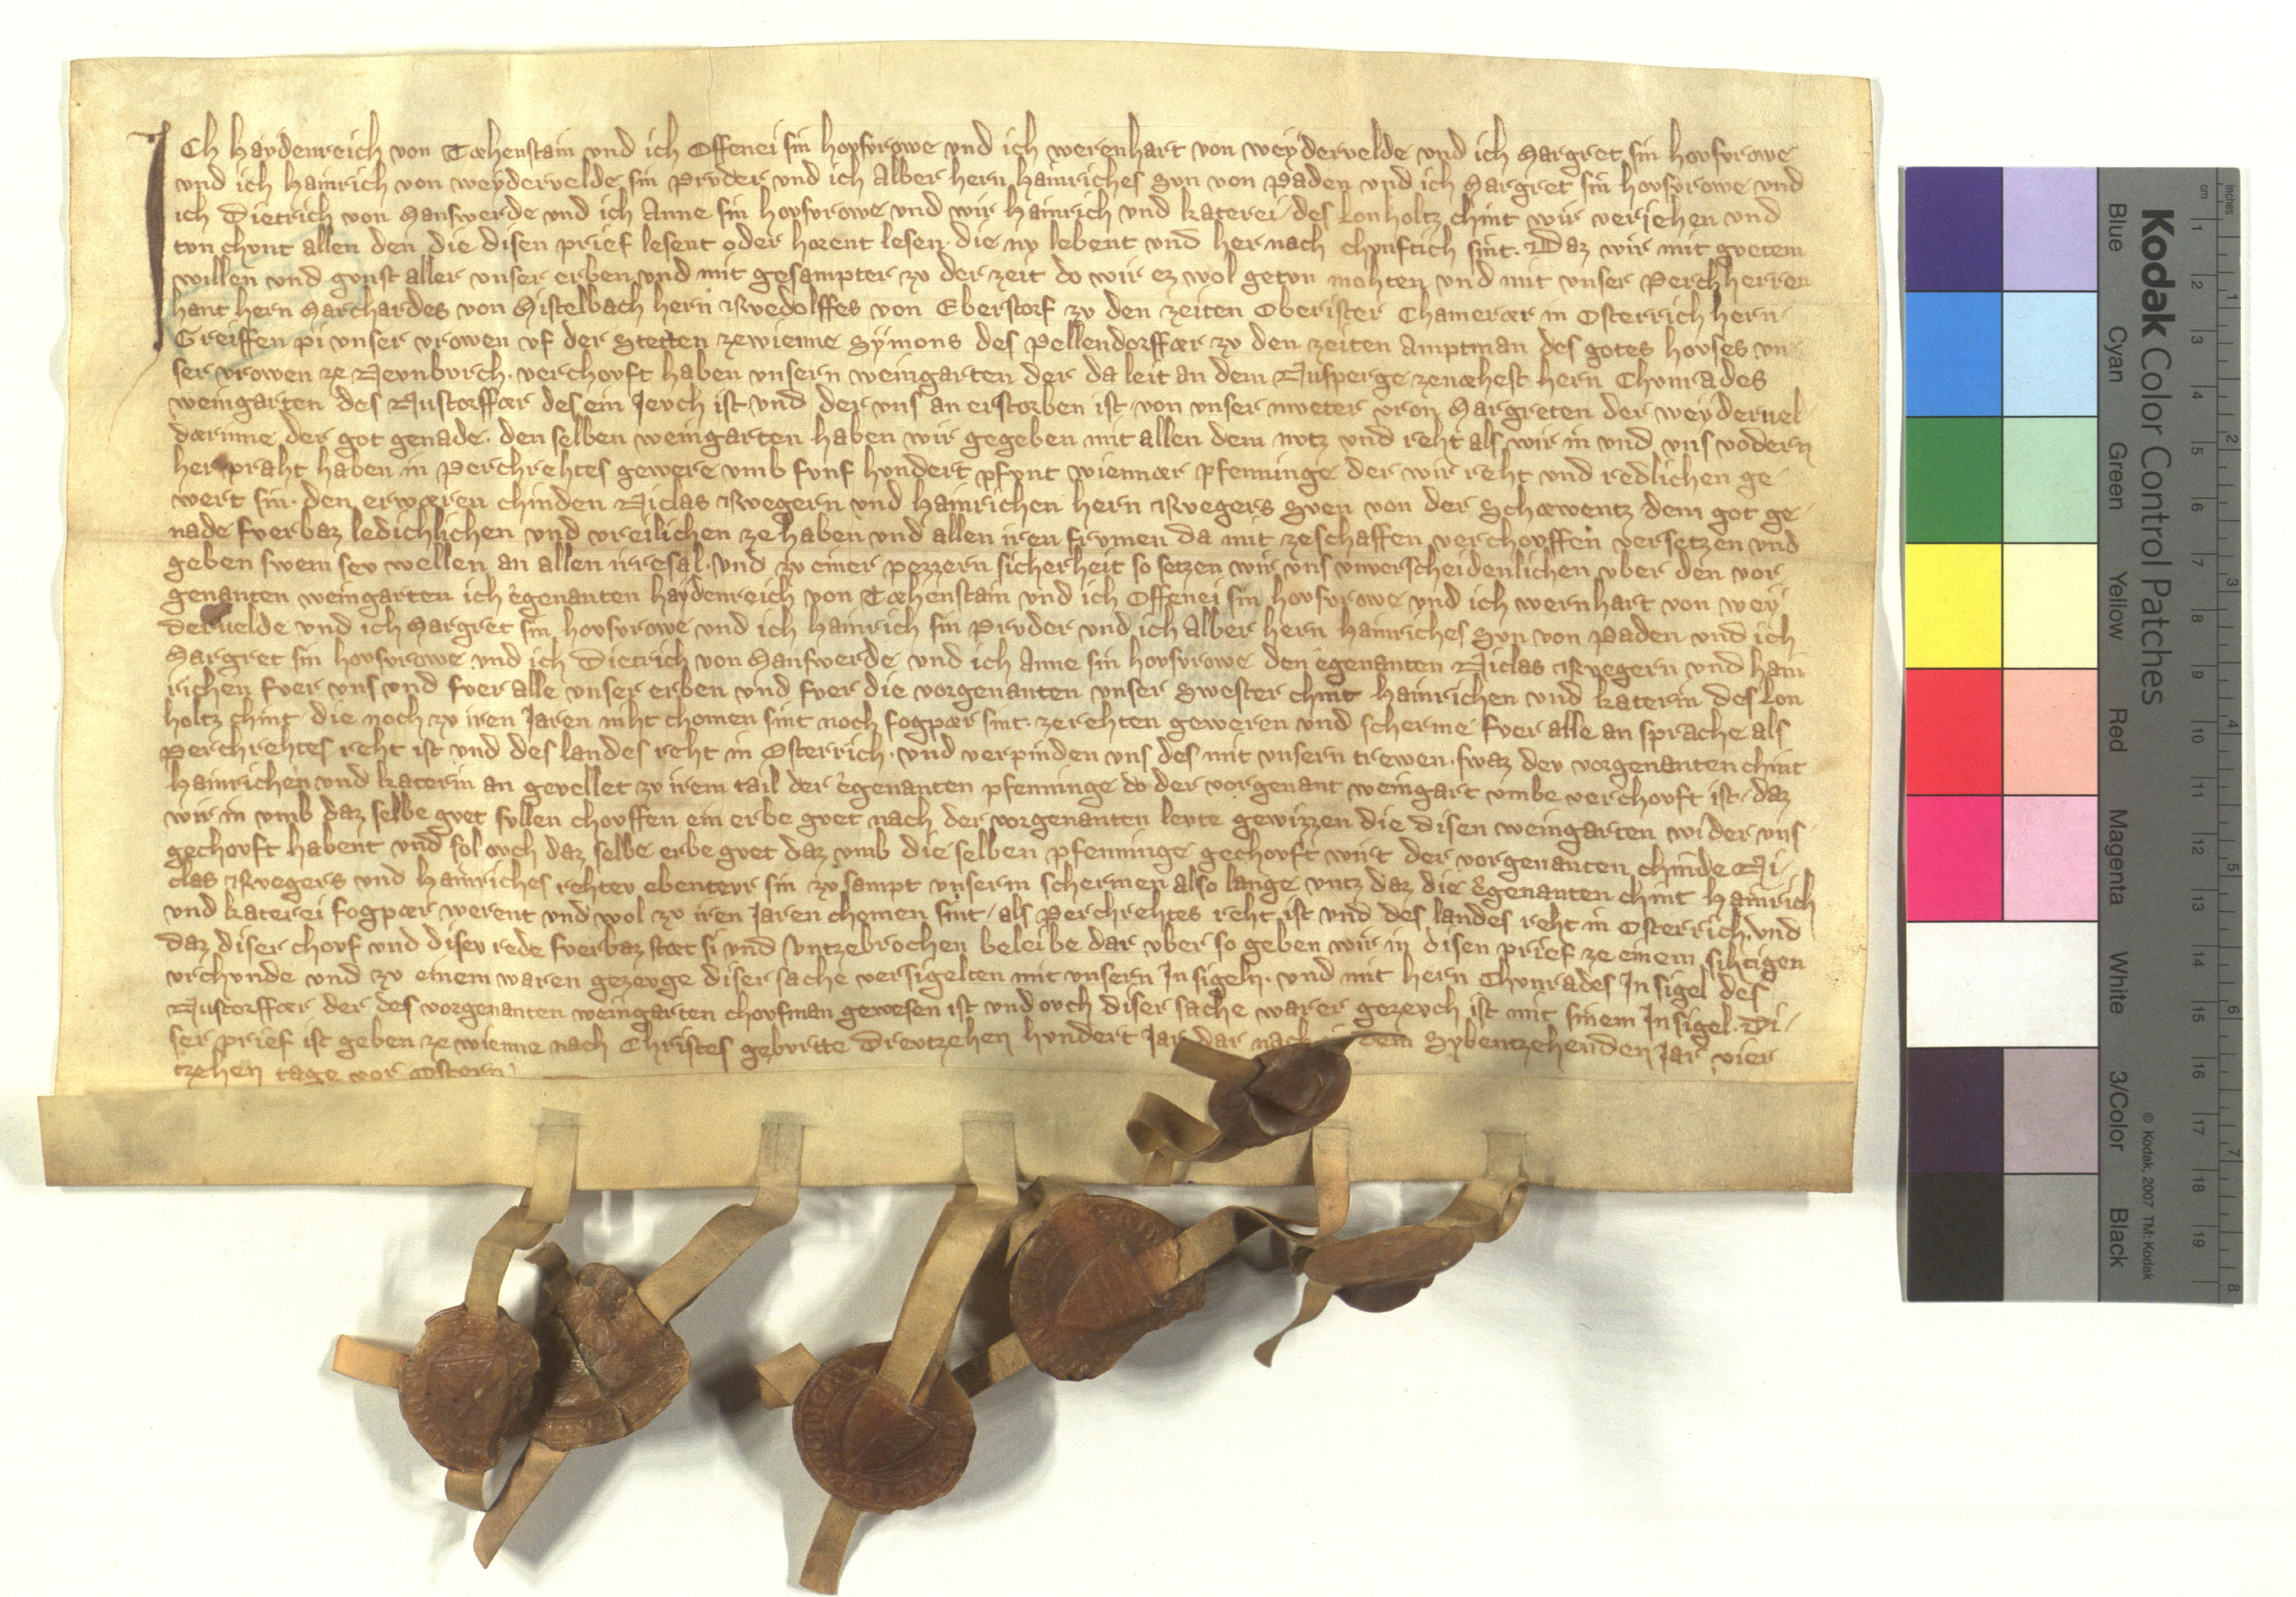 Ich Haydenreich von Tæhenstain vnd ich Offenei sin hovsvrowe vnd ich Werenhart von Weydervelde vnd ich Margret sin hovsvrowe
vnd ich Hainrich von Weydervelde sin Prvder vnd ich Alber hern Hainriches Svn von Paden vnd ich Margret sin hovsvrowe vnd
ich Dietrich von Manswerde vnd ich Anne sin hovsvrowe vnd wir Hainrich vnd katerei des Lonholtz chint wir veriehen vnd
tvn chvnt allen den die disen prief lesent oder horent lesen. die nv lebent vnd her nach chvnftich sint. Daz wir mit gvetem
willen vnd gvnst aller vnser erben vnd mit gesampter zv der zeit do wir ez wol getvn mohten vnd mit vnser Perchherren
hant hern Marchardes von Mistelbach hern Rvedolffes von Eberstorf zv den zeiten Oberister Chamerær in Osterrich hern
Greiffen pi vnser vrowen vf der Stetten zewienne Symons des Pellendorffær zv den zeiten amptman des gotes hovses vn
ser vrowen ze Nevnbvrch. verchovft haben vnsern weingarten der da leit an dem Nusperge zenæhest hern Chvnrades
weingarten des Nustorffær des ein Jevch ist vnd der vns an erstorben ist von vnser mveter vron Margreten der weydervel
dærinne der got genade. den selben weingarten haben wir gegeben mit allen dem nvtz vnd reht als wir in vnd vns vodern
her praht haben in Perchrehtes gewere vmb fvnf hvndert pfvnt wiennær pfenninge der wir reht vnd redlichen ge
wert sin. den erwæren chinden Niclas Rvegern vnd Hainrichen hern Rvegers Sven von der Schæwentz dem got ge
nade fverbaz ledichlichen vnd vreilichen ze haben vnd allen iren frvmen da mit zeschaffen verchovffen versetzen vnd
geben swem sev wellen an allen irresal. vnd zv einer pezzern sicherheit so setzen wir vns vnverscheidenlichen vber den vor
genanten weingarten ich egenanten Haydenreich von Tæhenstain vnd ich Offenei sin hovsvrowe vnd ich wernhart von wey
dervelde vnd ich Margret sin hovsvrowe vnd ich Hainrich sin Prvder vnd ich Alber hern Hainriches Svn von Paden vnd ich
Margret sin hovsvrowe vnd ich Dietrich von Manswerde vnd ich Anne sin hovsvrowe den egenanten Niclas Rvegern vnd Hain
richen fver vns vnd fver alle vnser erben vnd fver die vorgenanten vnser Swester chint Hainrichen vnd katerin des Lon
holtz chint die noch zv iren Jaren niht chomen sint noch fogpær sint. ze rehten geweren vnd scherme fver alle an sprache als
Perchrehtes reht ist vnd des landes reht in Osterrich. vnd verpinden vns des mit vnsern trewen. swaz dev vorgenanten chint
Hainrichen vnd katerin an gevellet zv irem tail der egenanten pfenninge do der vorgenant weingart vmbe verchovft ist. daz
wir in vmb daz selbe gvet svllen chovffen ein erbe gvet nach der vorgenanten levte gewizzen die disen weingarten wider vns
gechovft habent vnd sol ovch daz selbe erbe gvet daz vmb die selben pfenninge gechovft wirt der vorgenanten chinde Ni
clas Rvegers vnd Hainriches rehtev ebentevr sin zv sampt vnserm schermen also lange vntz daz die egenanten chint Hainrich
vnd katerei fogpær werent vnd wol zv iren Jaren chomen sint. als Perchrehtes reht ist vnd des landes reht in Osterrich vnd
daz diser chovf vnd disev rede fverbaz stæt si vnd vntzebrochen beleibe dar vber so geben wir in disen prief ze einem sihtigen
vrchvnde vnd zv einem waren gezevge diser sache versigelten mit vnsern Insigeln. vnd mit hern Chvnrades Insigel des
Nustorffær der des vorgenanten weingarten chovfman gewesen ist vnd ovch diser sache warer gezevch ist mit sinem Insigel. Di
ser prief ist geben ze wienne nach Christes gebvrtte Drevtzehen hvndert Jar dar nach in dem Sybentzehenden Jar vier
tzehen tage vor Ostern
Kodak Color Control Patches
Blue Cyan Green Yellow Red Magenta White 3/Color Black
© Kodak, 2007 TM: Kodak
inches 1 2 3 4 5 6 7 8
cm 1 2 3 4 5 6 7 8 9 10 11 12 13 14 15 16 17 18 19